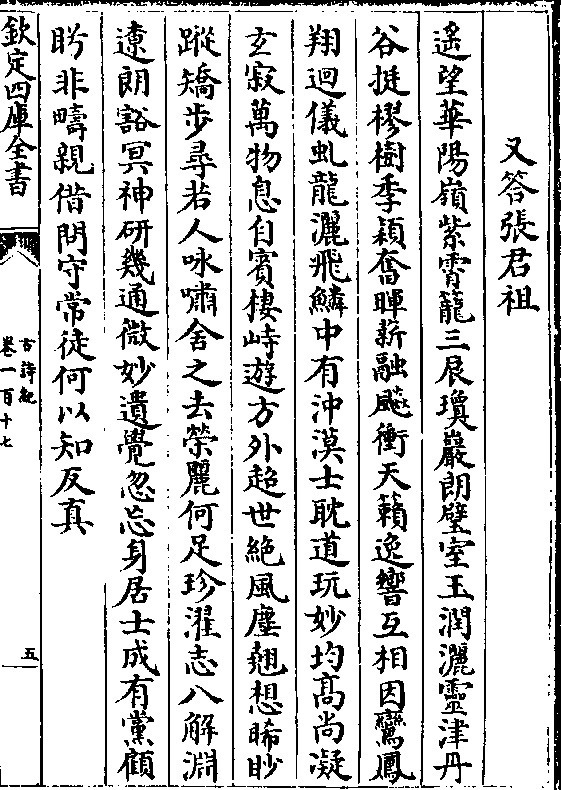 又答張君祖
遙望華陽嶺紫霄籠三辰瓊巖朗璧室玉潤灑靈津丹
谷挺樛樹季穎奮暉薪融飈衝天籟逸響互相因鸞鳳
翔迴儀虬龍灑飛鱗中有沖漠士耽道玩妙均高尚凝
玄寂萬物息自賓棲峙遊方外超世絶風塵翹想晞眇
蹤矯步尋若人咏嘯舍之去榮麗何足珍濯志八解淵
遼朗豁冥神研幾通微妙遺覺忽忘身居士成有黨顧
眄非疇親借問守常徒何以知反真
欽定四庫全書
古詩紀
卷一百十七
五